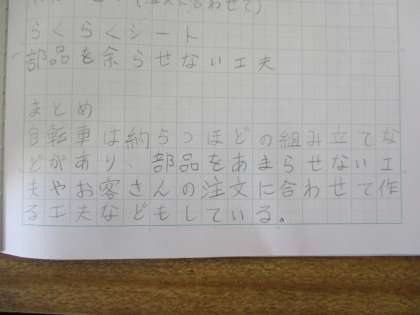 (注文に合わせて)
らくらくシート
部品を余らせない工夫
まとめ
自転車は納5つほどの組み立てな
どがあり、部品をあまらせない工
夫やお客さんの注文に合わせて作
る工夫などもしている。